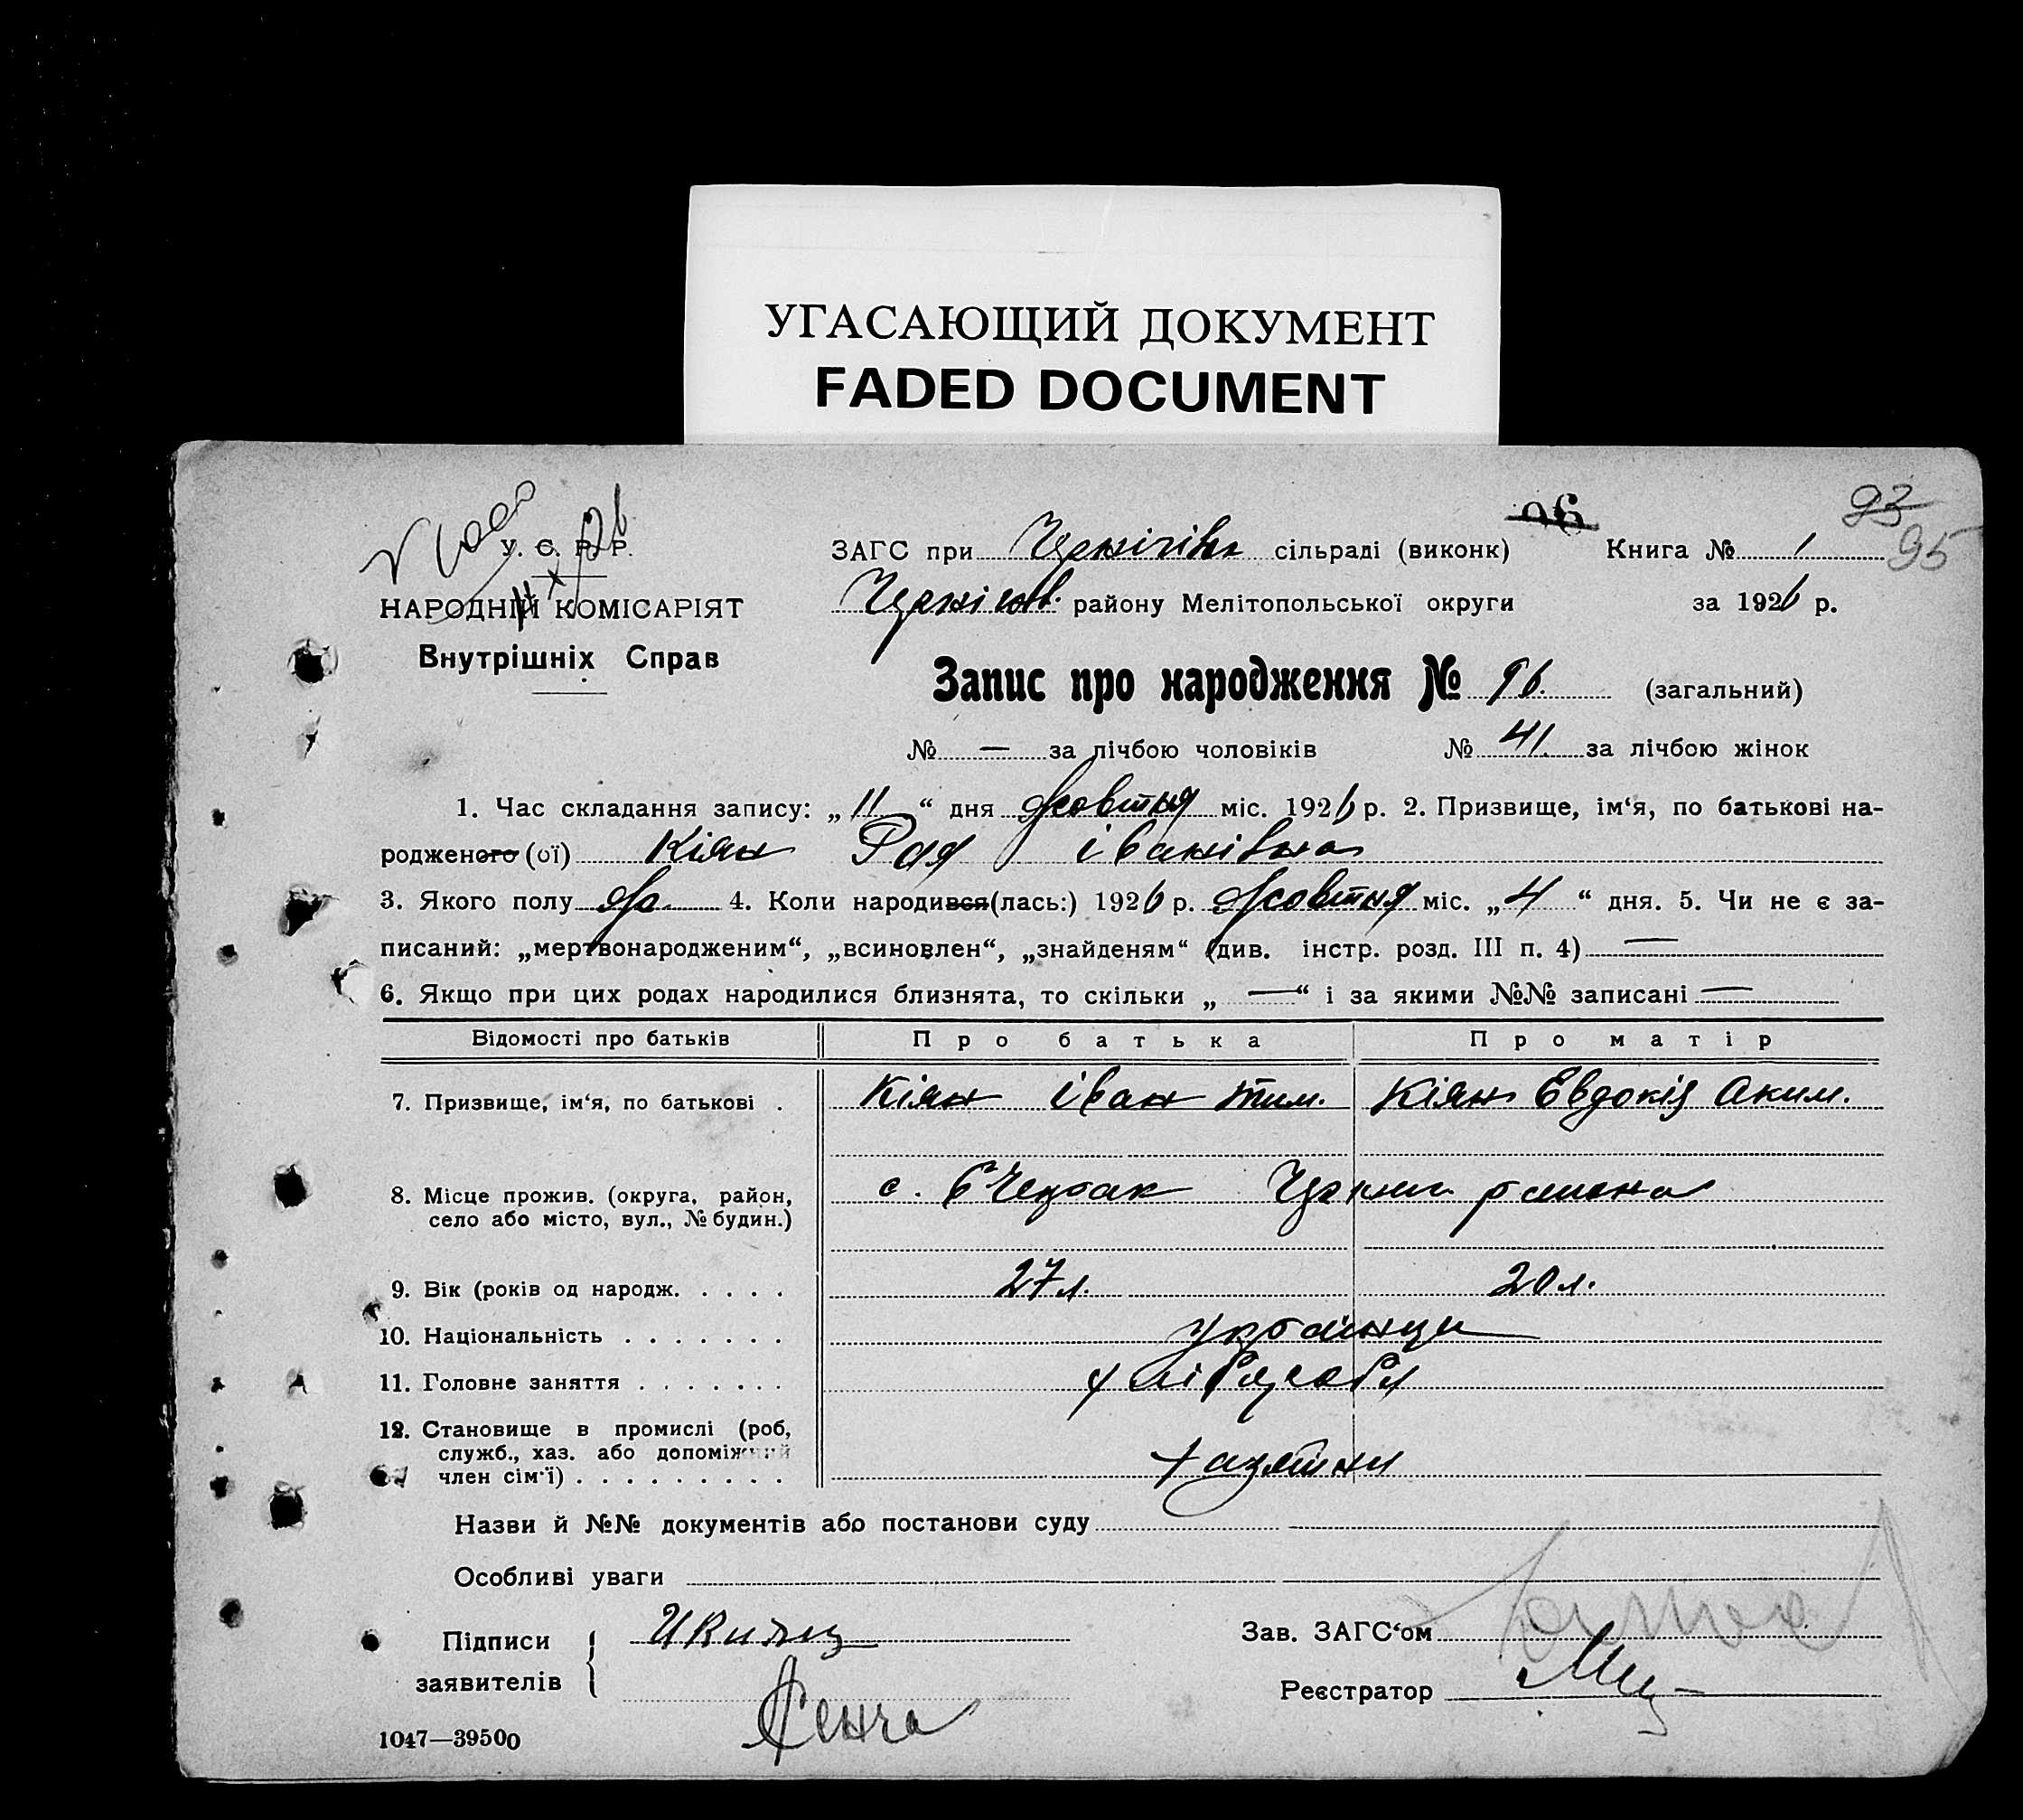 УГАСАЮЩИЙ ДОКУМЕНТ
FADED DOCUMENT
96
93
95
У. С. Р. Р.
НАРОДНІЙ КОМІСАРІЯТ
Внутрішніх Справ
ЗАГС при сільраді (виконк) Книга № 1
району Мелітопольської округи за 1926 р.
Запис про народження № 96. (загальний)
№ — за лічбою чоловіків № 41. за лічбою жінок
1. Час складання запису: „11“ дня Жовтня міс. 1926 р. 2. Призвище, ім‘я, по батькові на-
родженого (ої) Кіян Рая Іванівна
3. Якого полу Жо. 4. Коли народився(лась:) 1926 р. Жовтня міс. „4“ дня. 5. Чи не є за-
писаний: „мертвонародженим“, „всиновлен“, „знайденям“ (див. інстр. розд. III п. 4) —
6. Якщо при цих родах народилися близнята, то скільки „ — “ і за якими №№ записані —
Відомості про батьків Про батька Про матір
7. Призвище, ім‘я, по батькові . Кіян Іван Тим. Кіян Евдокія Аким.
8. Місце прожив. (округа, район, с. района
село або місто, вул., № будин.)
9. Вік (років од народж. . . . . 27 л. 20 л.
10. Національність . . . . . . . Українци
11. Головне заняття . . . . . . . хліборобы
12. Становище в промислі (роб,
служб., хаз. або допоміжний
член сім‘ї) . . . . . . . . .
Назви й №№ документів або постанови суду
Особливі уваги
Підписи
заявителів
Зав. ЗАГС‘ом
Реєстратор
1047—39500